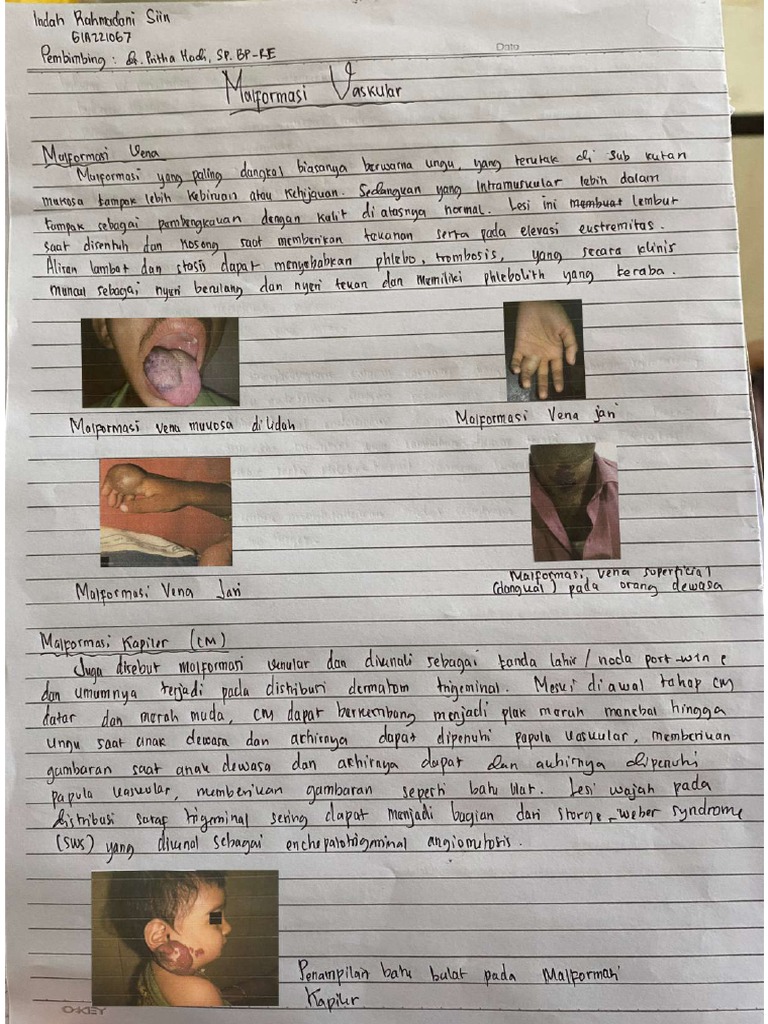 Indah Rahmadani Siin
G1A221067
Pembimbing : dr. Pritha Hadi, SP. BP-RE
Data
Malformasi Vaskular
Malformasi Vena
Malformasi yang paling dangkal biasanya berwarna ungu, yang terletak di sub kutan
mukosa tampak lebih kebiruan atau kehijauan. Sedangkan yang intramuskular lebih dalam
tampak sebagai pembengkakan dengan kulit di atasnya normal. Lesi ini membuat lembut
saat disentuh dan kosong saat memberikan tekanan serta pada elevasi eustremitas.
Aliran lambat dan stasis dapat menyebabkan phlebo, trombosis, yang secara klinis
muncul sebagai nyeri berulang dan nyeri tekan dan memiliki phlebolith yang teraba.
Malformasi vena mukosa di lidah
Malformasi Vena jari
Malformasi Vena Jari
Malformasi vena superficial
(dangkal) pada orang dewasa
Malformasi Kapiler (CM)
Juga disebut malformasi venular dan dikenali sebagai tanda lahir / noda port-wine
dan umumnya terjadi pada distribusi dermatom trigeminal. Meski di awal tahap CM
datar dan merah muda, CM dapat berkembang menjadi plak merah menebal hingga
ungu saat anak dewasa dan akhirnya dapat dipenuhi papula vaskular, memberikan
gambaran saat anak dewasa dan akhirnya dapat dan akhirnya dipenuhi
papula vaskular, memberikan gambaran seperti batu bulat. Lesi wajah pada
distribusi saraf trigeminal sering dapat menjadi bagian dari Storge-weber syndrome
(SWS) yang dikenal sebagai enchepalotrigminal angiomatosis.
Penampilan batu bulat pada Malformasi
Kapiler
OKEY